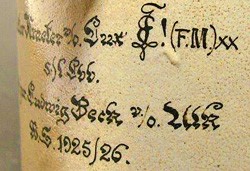 Kneeler v/o. Lux E! (F.M.) xx
s/l Lbb.
Ludwig Beck v/o. Ulk
W.S. 1925/26.